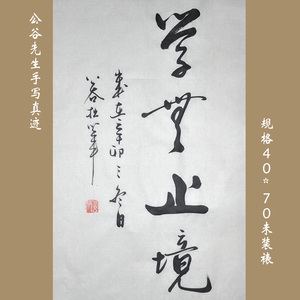 公谷先生手写真迹
学無止境
歲在辛卯之冬日
规格40*70未装裱